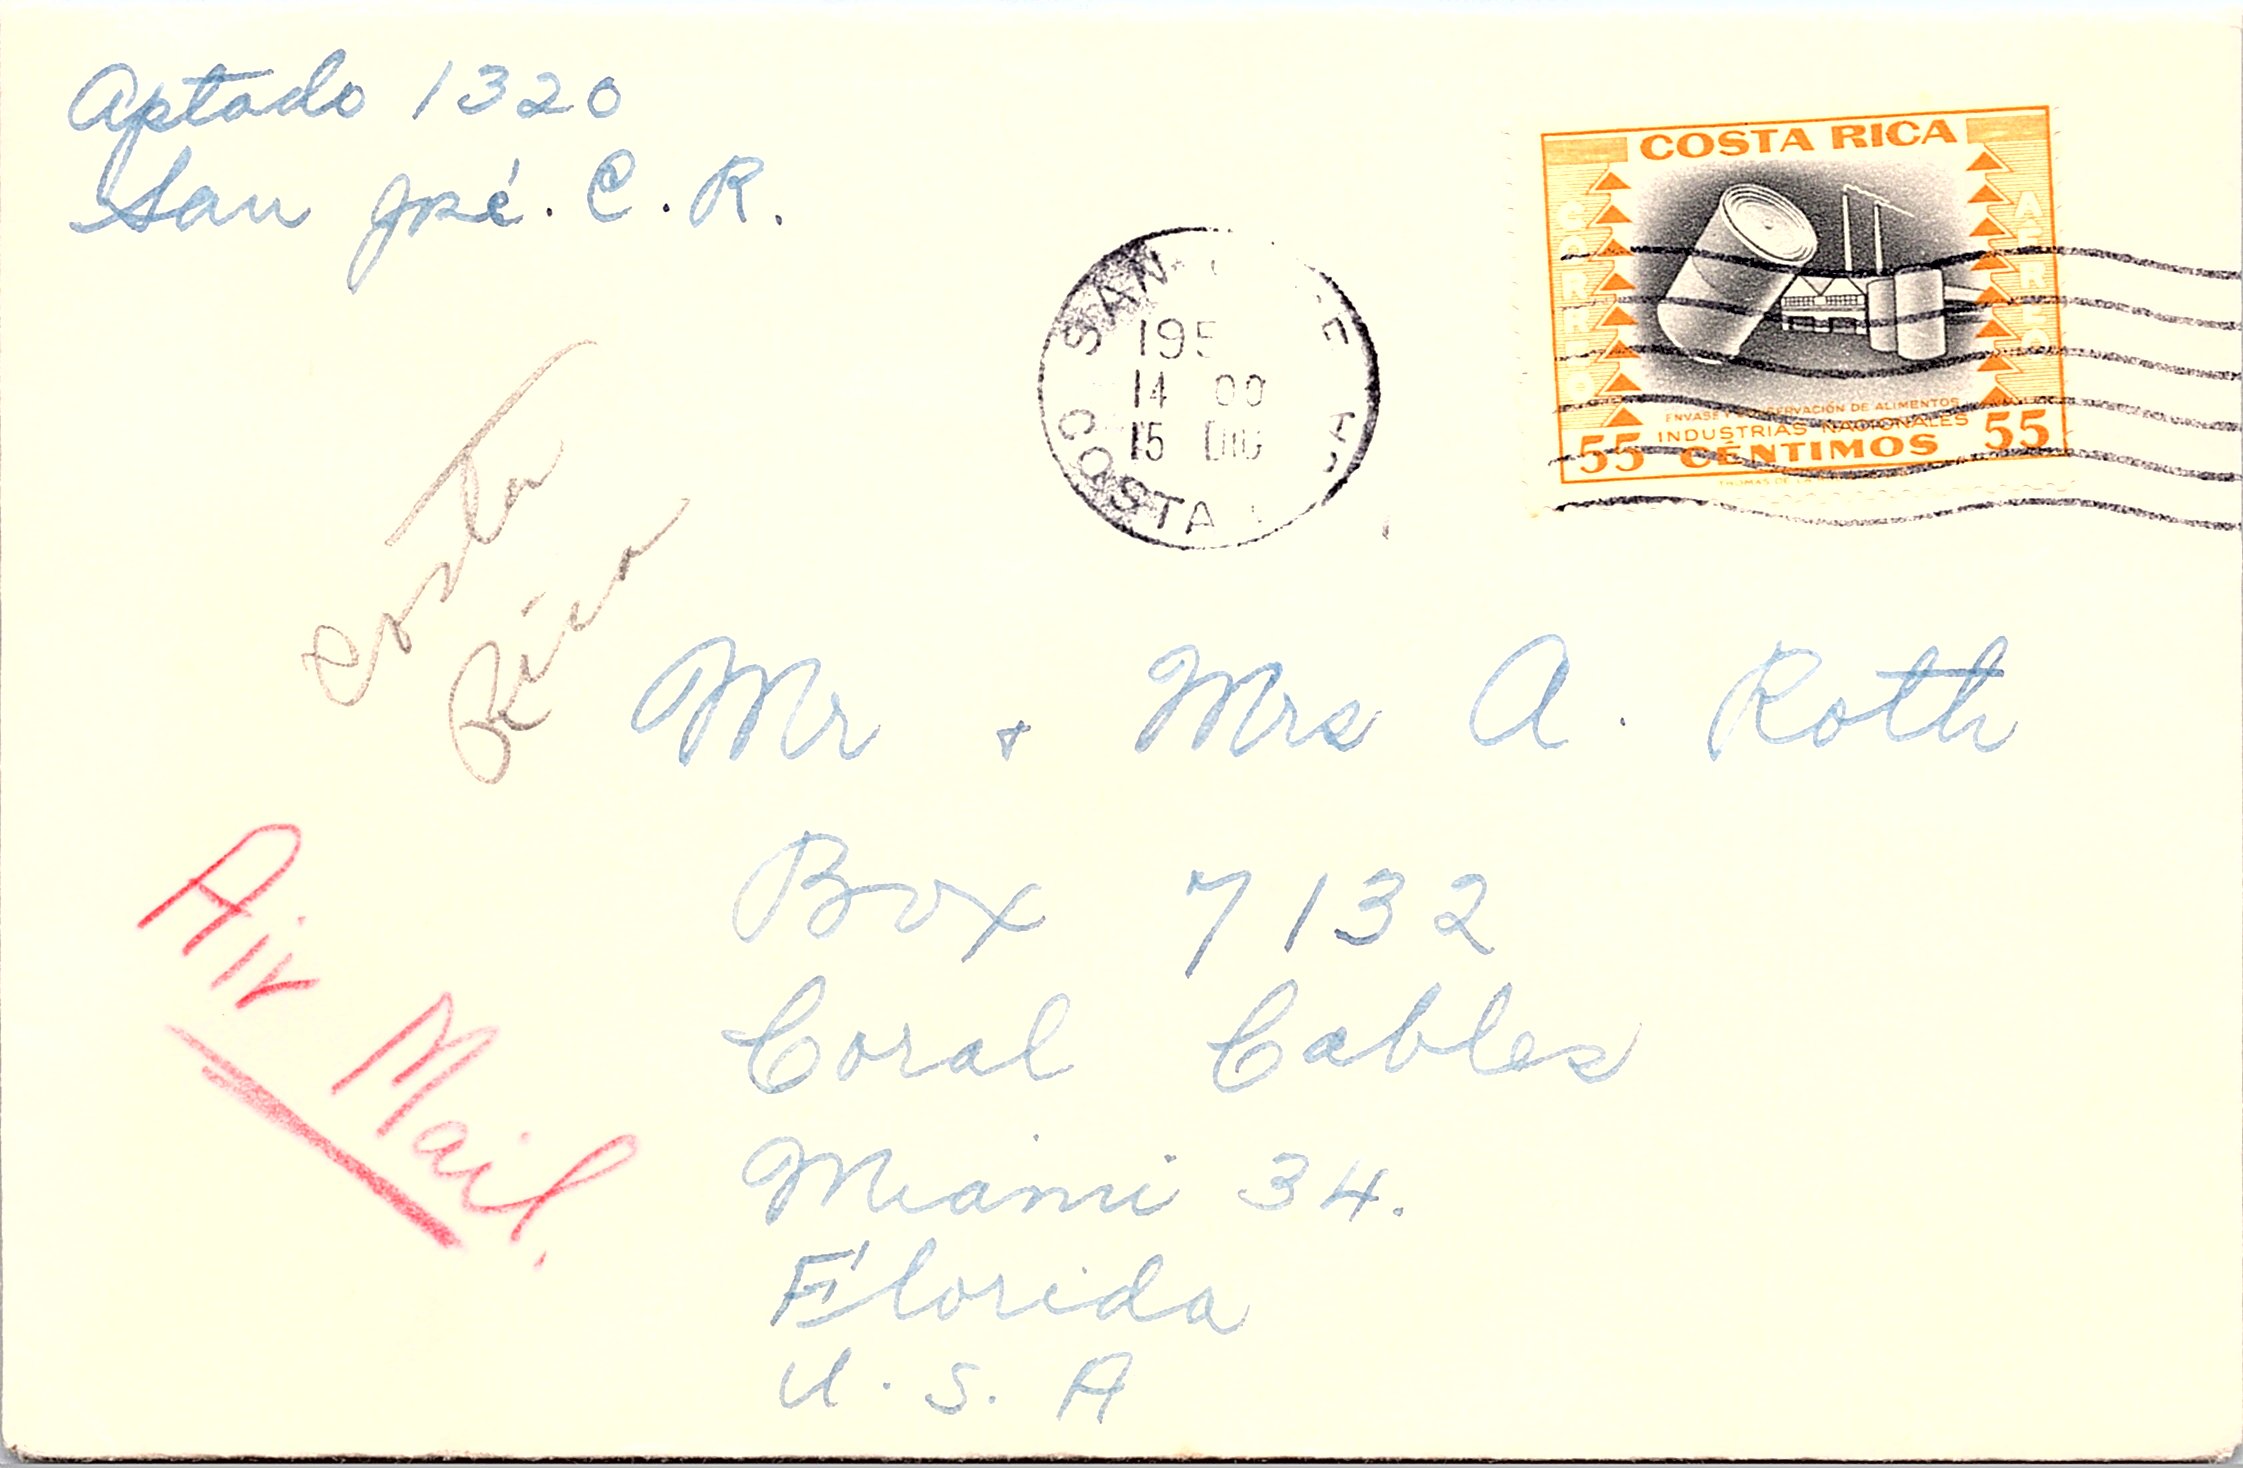 Aptado 1320
San José. C. R.
COSTA RICA
CORREO
AEREO
ENVASE Y CONSERVACIÓN DE ALIMENTOS
INDUSTRIAS NACIONALES
55 CÉNTIMOS 55
THOMAS DE LA
SAN
195
14 00
15 DIC
COSTA
Costa
Rica
Mr + Mrs A. Roth
Box 7132
Coral Cables
Miami 34.
Florida
U. S. A
Air Mail.